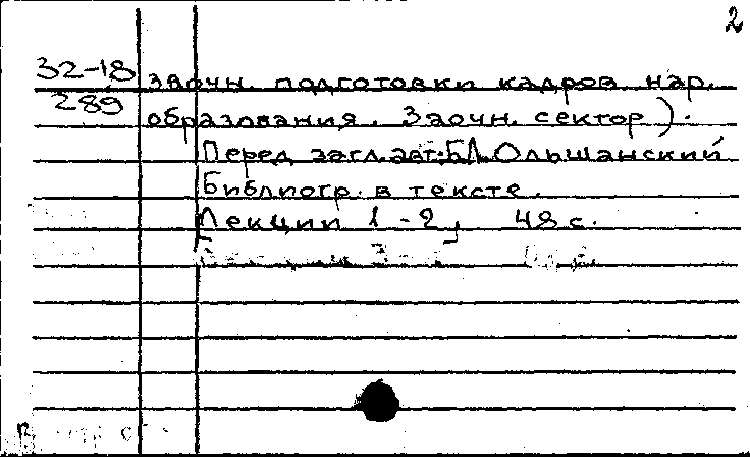 2
32-18 заочн. подготовки кадров нар.
289 образования. Заочн. сектор).
Перед загл. авт: Б.Л. Ольшанский
Библиогр. в тексте.
Лекции 1-2, 48 с.